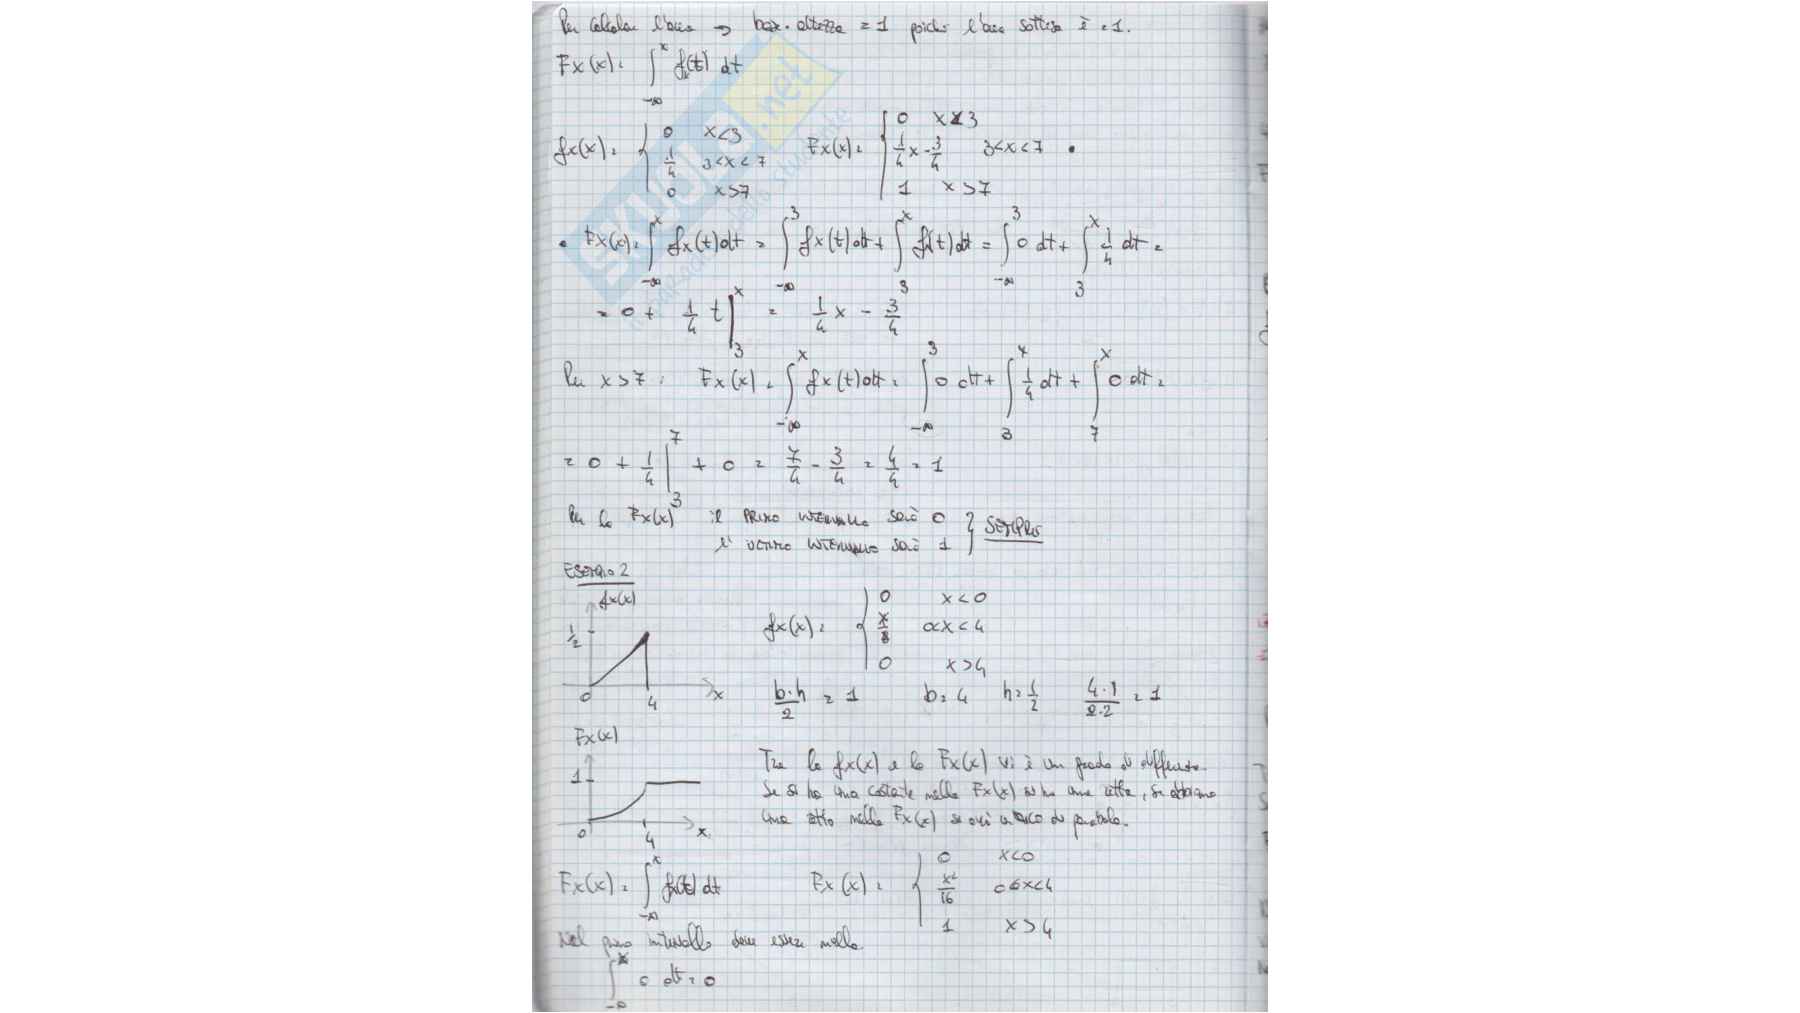 Per calcolare l'area → base · altezza = 1 poiché l'area sottesa è = 1.
Fx(x) = ∫_{-∞}^{x} fx(t) dt
fx(x) = { 0 x<3
1/4 3<x<7
0 x>7
Fx(x) = { 0 x<3
1/4 x - 3/4 3<x<7 •
1 x>7
• Fx(x) = ∫_{-∞}^{x} fx(t)dt = ∫_{-∞}^{3} fx(t)dt + ∫_{3}^{x} fx(t)dt = ∫_{-∞}^{3} 0 dt + ∫_{3}^{x} 1/4 dt =
= 0 + 1/4 t |_{3}^{x} = 1/4 x - 3/4
Per x>7: Fx(x) = ∫_{-∞}^{x} fx(t)dt = ∫_{-∞}^{3} 0 dt + ∫_{3}^{7} 1/4 dt + ∫_{7}^{x} 0 dt =
= 0 + 1/4 |_{3}^{7} + 0 = 7/4 - 3/4 = 4/4 = 1
Per la Fx(x) il PRIMO INTERVALLO sarà 0
l'ULTIMO INTERVALLO sarà 1 } SEMPRE
ESEMPIO 2
fx(x)
1/2
0 4 x
fx(x) = { 0 x<0
x/8 0<x<4
0 x>4
b·h/2 = 1 b = 4 h = 1/2 4·1/2·2 = 1
Fx(x)
1
0 4 x
Tra la fx(x) e la Fx(x) vi è un grado di differenza.
Se si ha una costante nella Fx(x) si ha una retta, se abbiamo
una retta nella Fx(x) si avrà un arco di parabola.
Fx(x) = ∫_{-∞}^{x} fx(t) dt
Fx(x) = { 0 x<0
x²/16 0≤x<4
1 x>4
Nel primo intervallo deve essere nulla.
∫_{-∞}^{x} 0 dt = 0
SKUOLA.net
il paradiso dello studente